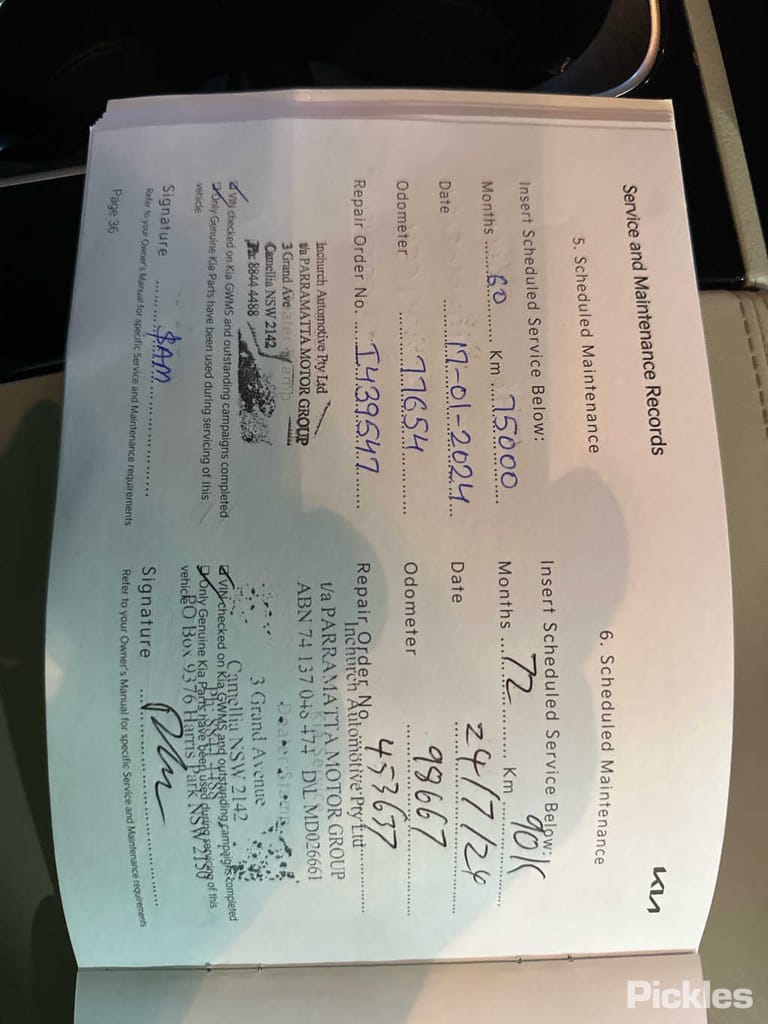 Service and Maintenance Records
KIA
5. Scheduled Maintenance
Insert Scheduled Service Below:
Months ........60............ Km ...75000...
Date ........17-01-2024........
Odometer ........77654........
Repair Order No. ......I439547......
Inchurch Automotive Pty Ltd
t/a PARRAMATTA MOTOR GROUP
3 Grand Ave
Camellia NSW 2142
Ph: 8844 4488
VIN checked on Kia GWMS and outstanding campaigns completed
Only Genuine Kia Parts have been used during servicing of this
vehicle
Signature ........SAM........
Refer to your Owner's Manual for specific Service and Maintenance requirements
Page 36
6. Scheduled Maintenance
Insert Scheduled Service Below:
Months ........72........ Km ...90K...
Date ........24/7/24........
Odometer ........98667........
Repair Order No. 453637
Inchurch Automotive Pty Ltd
t/a PARRAMATTA MOTOR GROUP
ABN 74 137 048 474 DL MD026661
Dealer Stamp
3 Grand Avenue
Camellia NSW 2142
VIN checked on Kia GWMS and outstanding campaigns completed
Only Genuine Kia Parts have been used during servicing of this
vehicle
PO Box 9376 Harris Park NSW 2150
Signature
Refer to your Owner's Manual for specific Service and Maintenance requirements
Pickles